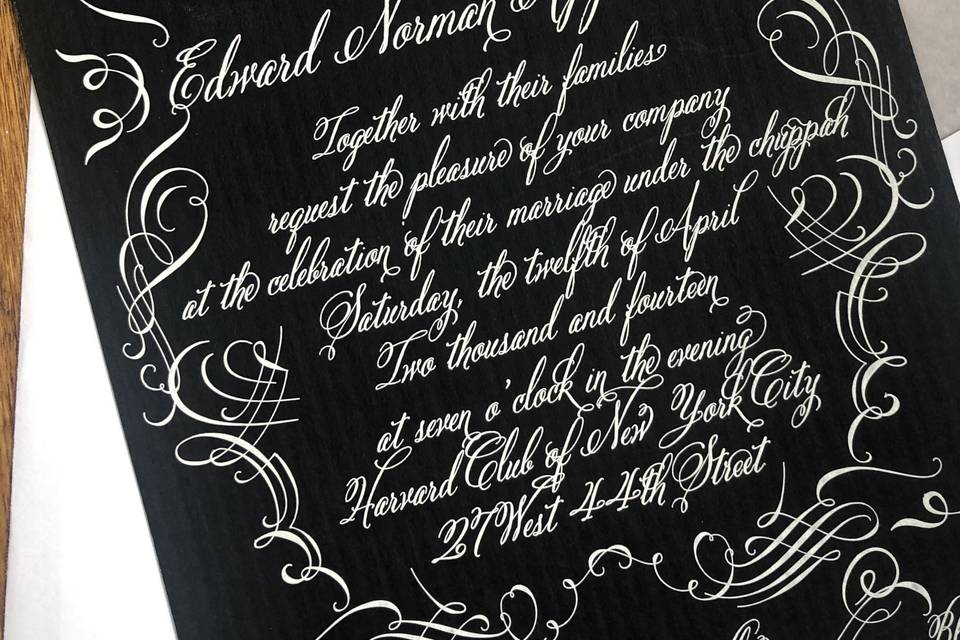 Edward Norman
Together with their families
request the pleasure of your company
at the celebration of their marriage under the chuppah
Saturday, the twelfth of April
Two thousand and fourteen
at seven o'clock in the evening
Harvard Club of New York City
27 West 44th Street